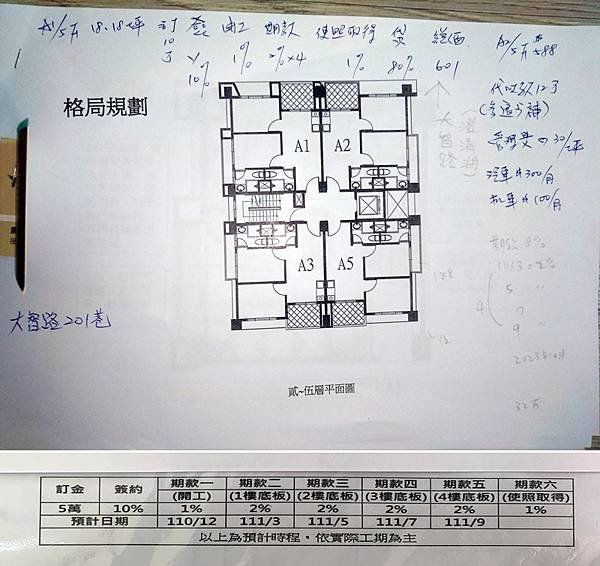 A1/5F 18.18坪 訂 簽 開工 期款 使照取得 貸 總價 A2/5F 588
10% 1% 2%x4 1% 80% 601
代收款12万
(多退少補)
管理費 30/坪
汽車 300/月
机車 100/月
格局規劃
大智路
(澄清湖)
A1 A2
A3 A5
期款 8%
5
7
9
大智路201巷
32万
貳~伍層平面圖
訂金 簽約 期款一(開工) 期款二(1樓底板) 期款三(2樓底板) 期款四(3樓底板) 期款五(4樓底板) 期款六(使照取得)
5萬 10% 1% 2% 2% 2% 2% 1%
預計日期 110/12 111/3 111/5 111/7 111/9
以上為預計時程，依實際工期為主